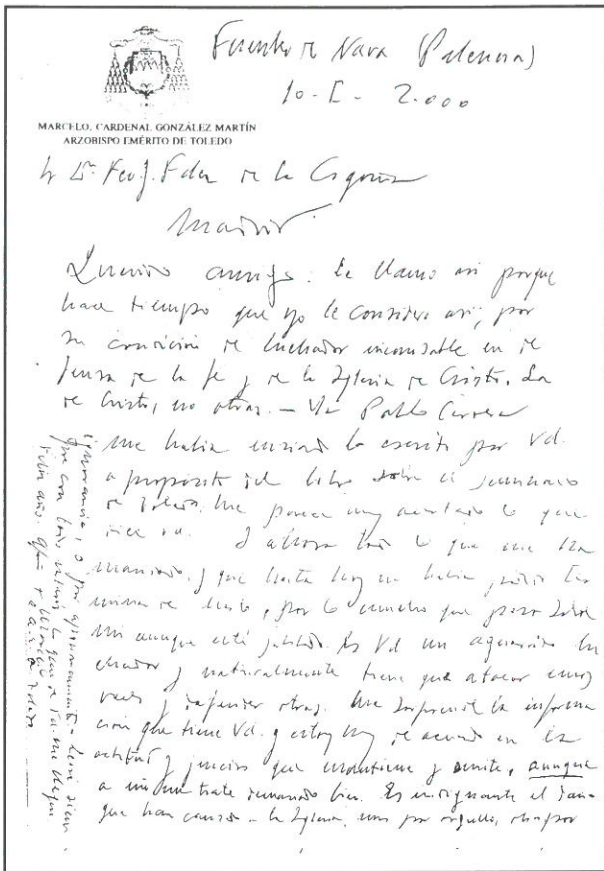 Fuentes de Nava (Palencia)
10-I-2.000
MARCELO, CARDENAL GONZÁLEZ MARTÍN
ARZOBISPO EMÉRITO DE TOLEDO
Sr. D. Fco. J. Fdez de la Cigoña
Madrid
Querido amigo: Le llamo así porque
hace tiempo que yo le considero así, por
su condición de luchador incansable en de
fensa de la fe y de la Iglesia de Cristo. La
de Cristo, no otras. — Ya Pablo Cervera
me había enviado lo escrito por Vd.
a propósito del libro sobre el seminario
de Toledo. Me parece muy acertado lo que
dice Vd. Y ahora todo lo que me ha
mandado, y que hasta hoy no había podido
de leerlo, por lo mucho que pesa sobre
mí aunque esté jubilado. Es Vd un aguerrido lu
chador y naturalmente tiene que atacar unas
veces y defender otras. Me sorprende la informa
ción que tiene Vd. y estoy muy de acuerdo en la
actitud y juicios que mantiene y emite, aunque
a mí me trate demasiado bien. Es indignante el daño
que han causado a la Iglesia, unos por orgullo, otros por
ignorancia, o por
que con todo interés lo que de Vd. me llegue
Feliz año.